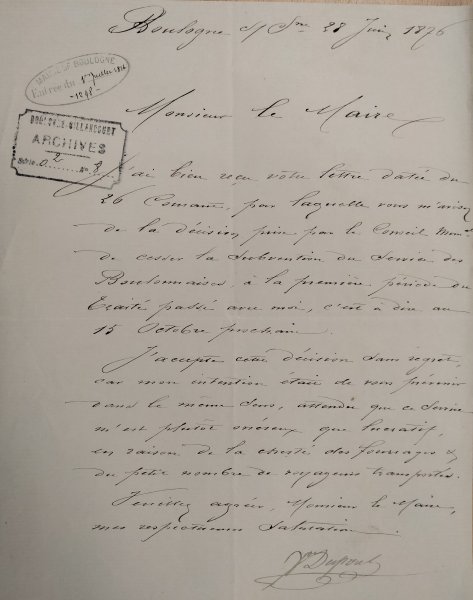 Boulogne s/ Sne 28 Juin 1876
MAIRIE DE BOULOGNE
Entrée du 1er Juillet 1876
-1298-
BOULOGNE-BILLANCOURT
ARCHIVES
2
Série O N° 8
Monsieur le Maire,
J'ai bien reçu votre lettre datée du
26 Courant, par laquelle vous m'avisez
de la décision prise par le Conseil Mun.al
de cesser la Subvention du Service des
Boulonnaises, à la première période du
Traité passé avec moi, c'est à dire au
15 Octobre prochain.
J'accepte cette décision sans regret,
car mon intention était de vous prévenir
dans le même sens, attendu que ce Service
m'est plutôt onéreux que lucratif,
en raison de la cherté des fourrages &
du petit nombre de voyageurs transportés.
Veuillez agréer, Monsieur le Maire,
mes respectueuses Salutations.
Dupont